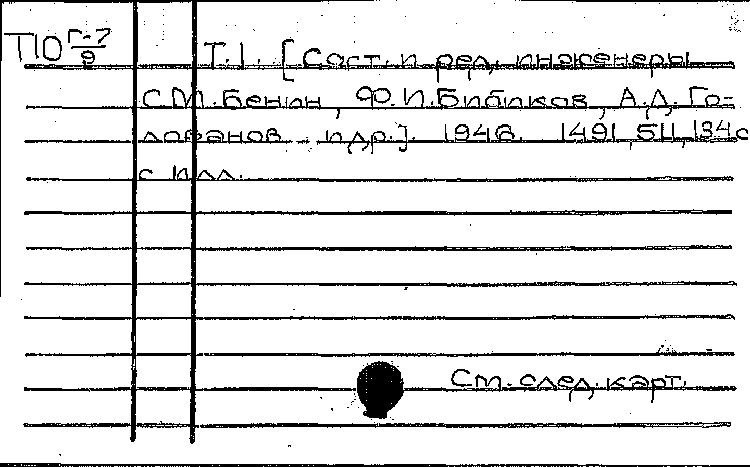 П10 Г-7/9
Т.1. [Сост. и ред. инженеры
С.М.Бенин, Ф.И.Бибиков, А.Д.Го-
лованов и др.]. 1946. 1491, 511, 134с
с илл.
См. след. карт.